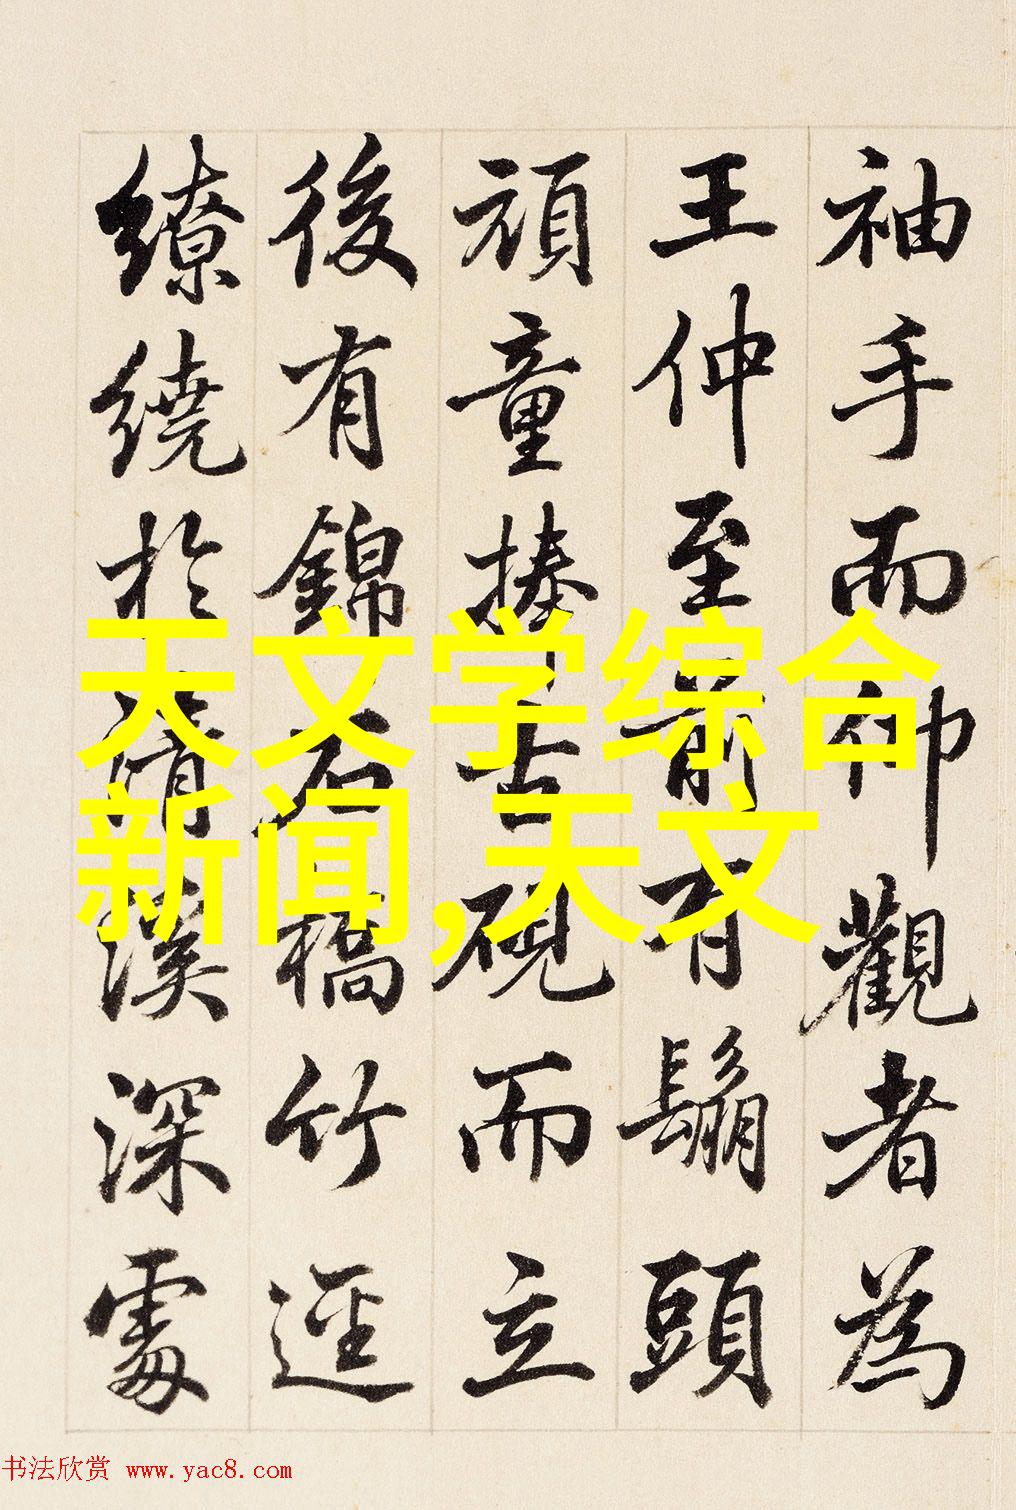 袖手而仰觀者為
王仲至前有鬅頭
頑童捧古硯而立
後有錦石橋竹逕
繚繞於清溪深處
天文学综合
新闻,天文
书法欣赏 www.yac8.com